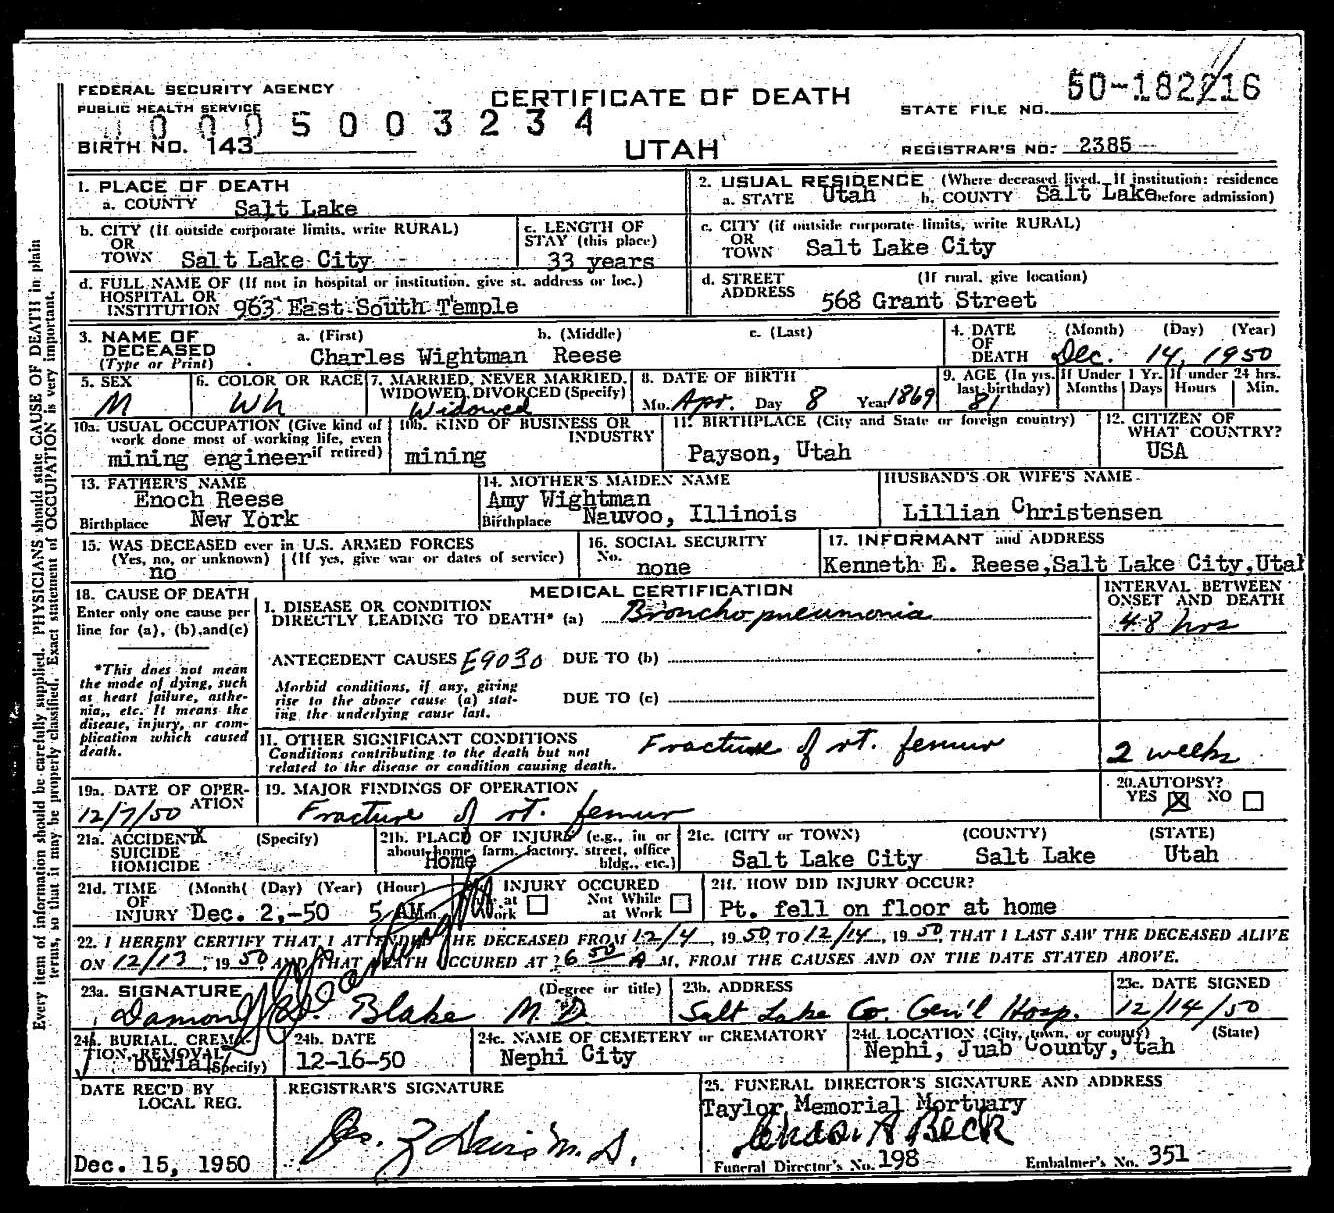 FEDERAL SECURITY AGENCY
PUBLIC HEALTH SERVICE
CERTIFICATE OF DEATH
UTAH
STATE FILE NO. 50-182216
0005003234
BIRTH NO. 143
REGISTRAR'S NO. 2385
1. PLACE OF DEATH
a. COUNTY Salt Lake
2. USUAL RESIDENCE (Where deceased lived. If institution: residence before admission)
a. STATE Utah b. COUNTY Salt Lake
b. CITY (If outside corporate limits, write RURAL)
OR
TOWN Salt Lake City
c. LENGTH OF
STAY (this place)
33 years
c. CITY (if outside corporate limits, write RURAL)
OR
TOWN Salt Lake City
d. FULL NAME OF (If not in hospital or institution, give st. address or loc.)
HOSPITAL OR
INSTITUTION 963 East South Temple
d. STREET (If rural, give location)
ADDRESS 568 Grant Street
3. NAME OF a. (First) b. (Middle) c. (Last)
DECEASED
(Type or Print) Charles Wightman Reese
4. DATE (Month) (Day) (Year)
OF
DEATH Dec. 14, 1950
5. SEX
M
6. COLOR OR RACE
Wh
7. MARRIED, NEVER MARRIED,
WIDOWED, DIVORCED (Specify)
Widowed
8. DATE OF BIRTH
Mo. Apr. Day 8 Year 1869
9. AGE (In yrs. last birthday)
81
If Under 1 Yr.
Months Days
If under 24 hrs.
Hours Min.
10a. USUAL OCCUPATION (Give kind of
work done most of working life, even
if retired) mining engineer
10b. KIND OF BUSINESS OR
INDUSTRY
mining
11. BIRTHPLACE (City and State or foreign country)
Payson, Utah
12. CITIZEN OF
WHAT COUNTRY?
USA
13. FATHER'S NAME
Enoch Reese
Birthplace New York
14. MOTHER'S MAIDEN NAME
Amy Wightman
Birthplace Nauvoo, Illinois
HUSBAND'S OR WIFE'S NAME
Lillian Christensen
15. WAS DECEASED ever in U.S. ARMED FORCES
(Yes, no, or unknown) (If yes, give war or dates of service)
no
16. SOCIAL SECURITY
No. none
17. INFORMANT and ADDRESS
Kenneth E. Reese, Salt Lake City, Utah
18. CAUSE OF DEATH
Enter only one cause per
line for (a), (b), and (c)
*This does not mean
the mode of dying, such
as heart failure, asthe-
nia, etc. It means the
disease, injury, or com-
plication which caused
death.
MEDICAL CERTIFICATION
I. DISEASE OR CONDITION
DIRECTLY LEADING TO DEATH* (a) Bronchopneumonia
INTERVAL BETWEEN
ONSET AND DEATH
48 hrs
ANTECEDENT CAUSES E9030 DUE TO (b)
Morbid conditions, if any, giving
rise to the above cause (a) stat-
ing the underlying cause last.
DUE TO (c)
11. OTHER SIGNIFICANT CONDITIONS
Conditions contributing to the death but not
related to the disease or condition causing death.
Fracture of rt. femur
2 weeks
19a. DATE OF OPER-
ATION
12/7/50
19. MAJOR FINDINGS OF OPERATION
Fracture of rt. femur
20. AUTOPSY?
YES X NO
21a. ACCIDENT X (Specify)
SUICIDE
HOMICIDE
21b. PLACE OF INJURY (e.g., in or
about home, farm, factory, street, office
bldg., etc.)
Home
21c. (CITY or TOWN) (COUNTY) (STATE)
Salt Lake City Salt Lake Utah
21d. TIME (Month) (Day) (Year) (Hour)
OF
INJURY Dec. 2,-50 5 AM m.
INJURY OCCURED
at Work Not While
at Work
21f. HOW DID INJURY OCCUR?
Pt. fell on floor at home
22. I HEREBY CERTIFY THAT I ATTENDED THE DECEASED FROM 12/4, 1950 TO 12/14, 1950, THAT I LAST SAW THE DECEASED ALIVE
ON 12/13, 1950, AND THAT DEATH OCCURED AT 6 50 A M, FROM THE CAUSES AND ON THE DATE STATED ABOVE.
23a. SIGNATURE (Degree or title)
Blake M.D.
23b. ADDRESS
Salt Lake Co. Gen'l Hosp.
23c. DATE SIGNED
12/14/50
24a. BURIAL, CREMA-
TION, REMOVAL
(Specify) burial
24b. DATE
12-16-50
24c. NAME OF CEMETERY or CREMATORY
Nephi City
24d. LOCATION (City, town, or county) (State)
Nephi, Juab County, Utah
DATE REC'D BY
LOCAL REG.
Dec. 15, 1950
REGISTRAR'S SIGNATURE
25. FUNERAL DIRECTOR'S SIGNATURE AND ADDRESS
Taylor Memorial Mortuary
Beck
Funeral Director's No. 198 Embalmer's No. 351
Every item of information should be carefully supplied. PHYSICIANS should state CAUSE OF DEATH in plain
terms, so that it may be properly classified. Exact statement of OCCUPATION is very important.